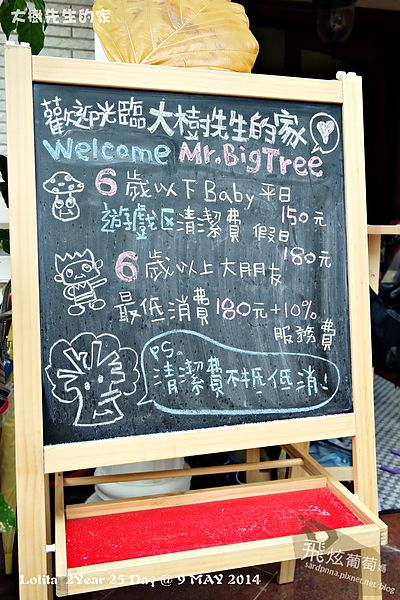 大樹先生的家
歡迎光臨 大樹先生的家
Welcome Mr.BigTree
6歲以下Baby 平日 150元
遊戲区清潔費 假日 180元
6歲以上大朋友
最低消費180元+10%
服務費
PS.
清潔費不抵低消!
飛炫葡萄媽
sardpnna.pixnet.net/blog
Lolita 2Year 25 Day @ 9 MAY 2014